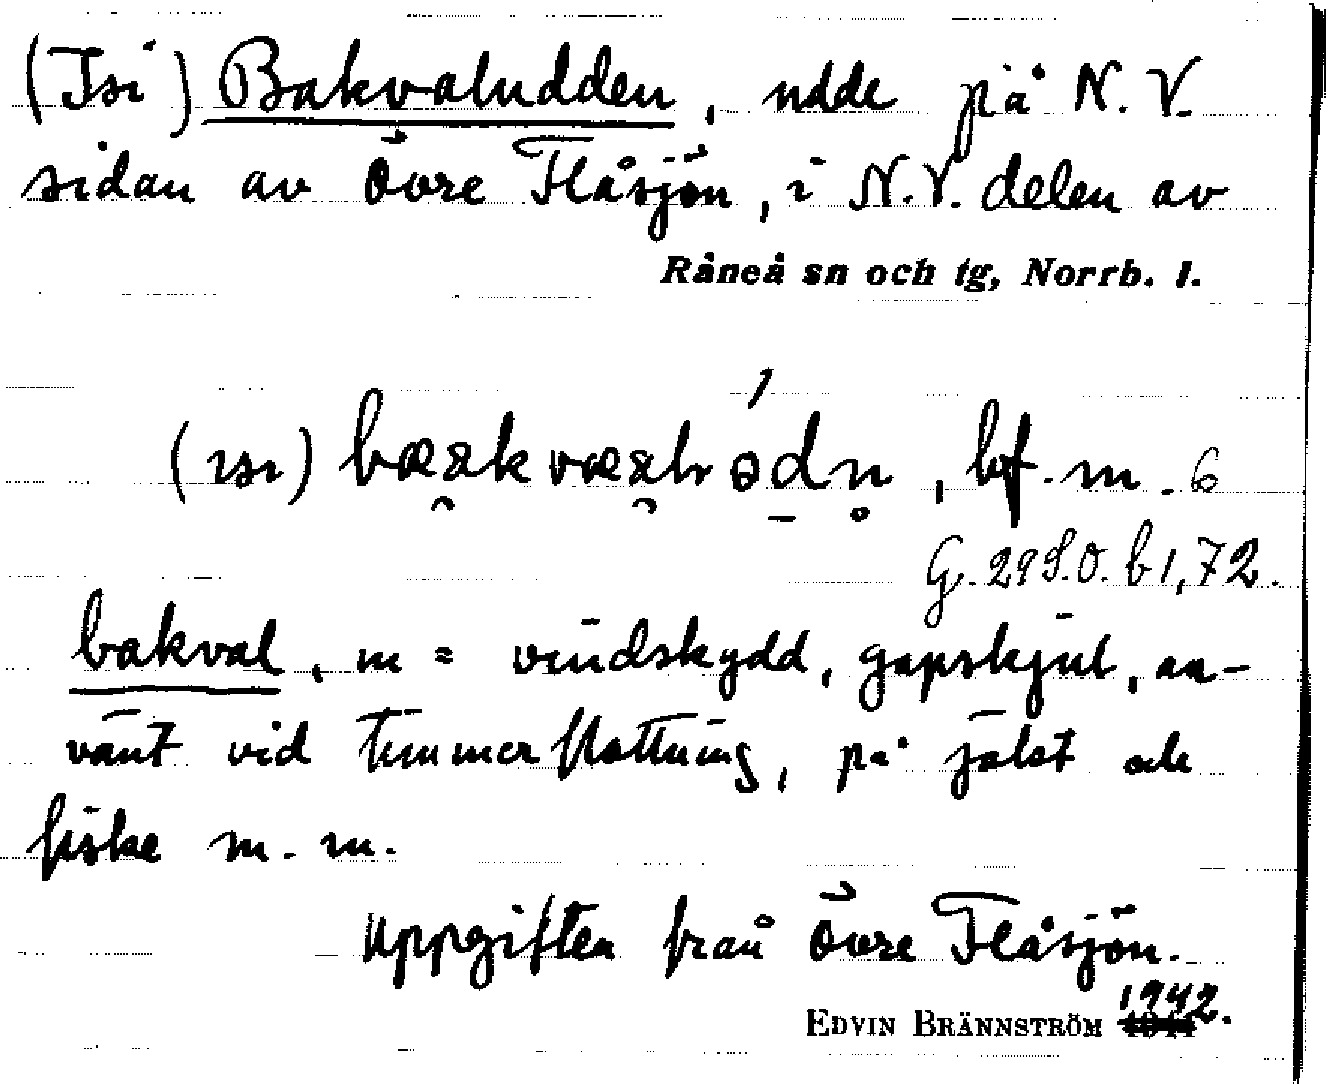 (Isi) Bakvaludden, udde på N.V.
sidan av Övre Flåsjön, i N.V. delen av
Råneå sn och tg, Norrb. l.
(ısı) , bf. m. 6
G. 29 S.O. b 1, 72.
bakval, m = vindskydd, gapskjul, an-
vänt vid timmerflottning, på jakt och
fiske m.m.
Uppgiften från Övre Flåsjön.
1942.
EDVIN BRÄNNSTRÖM